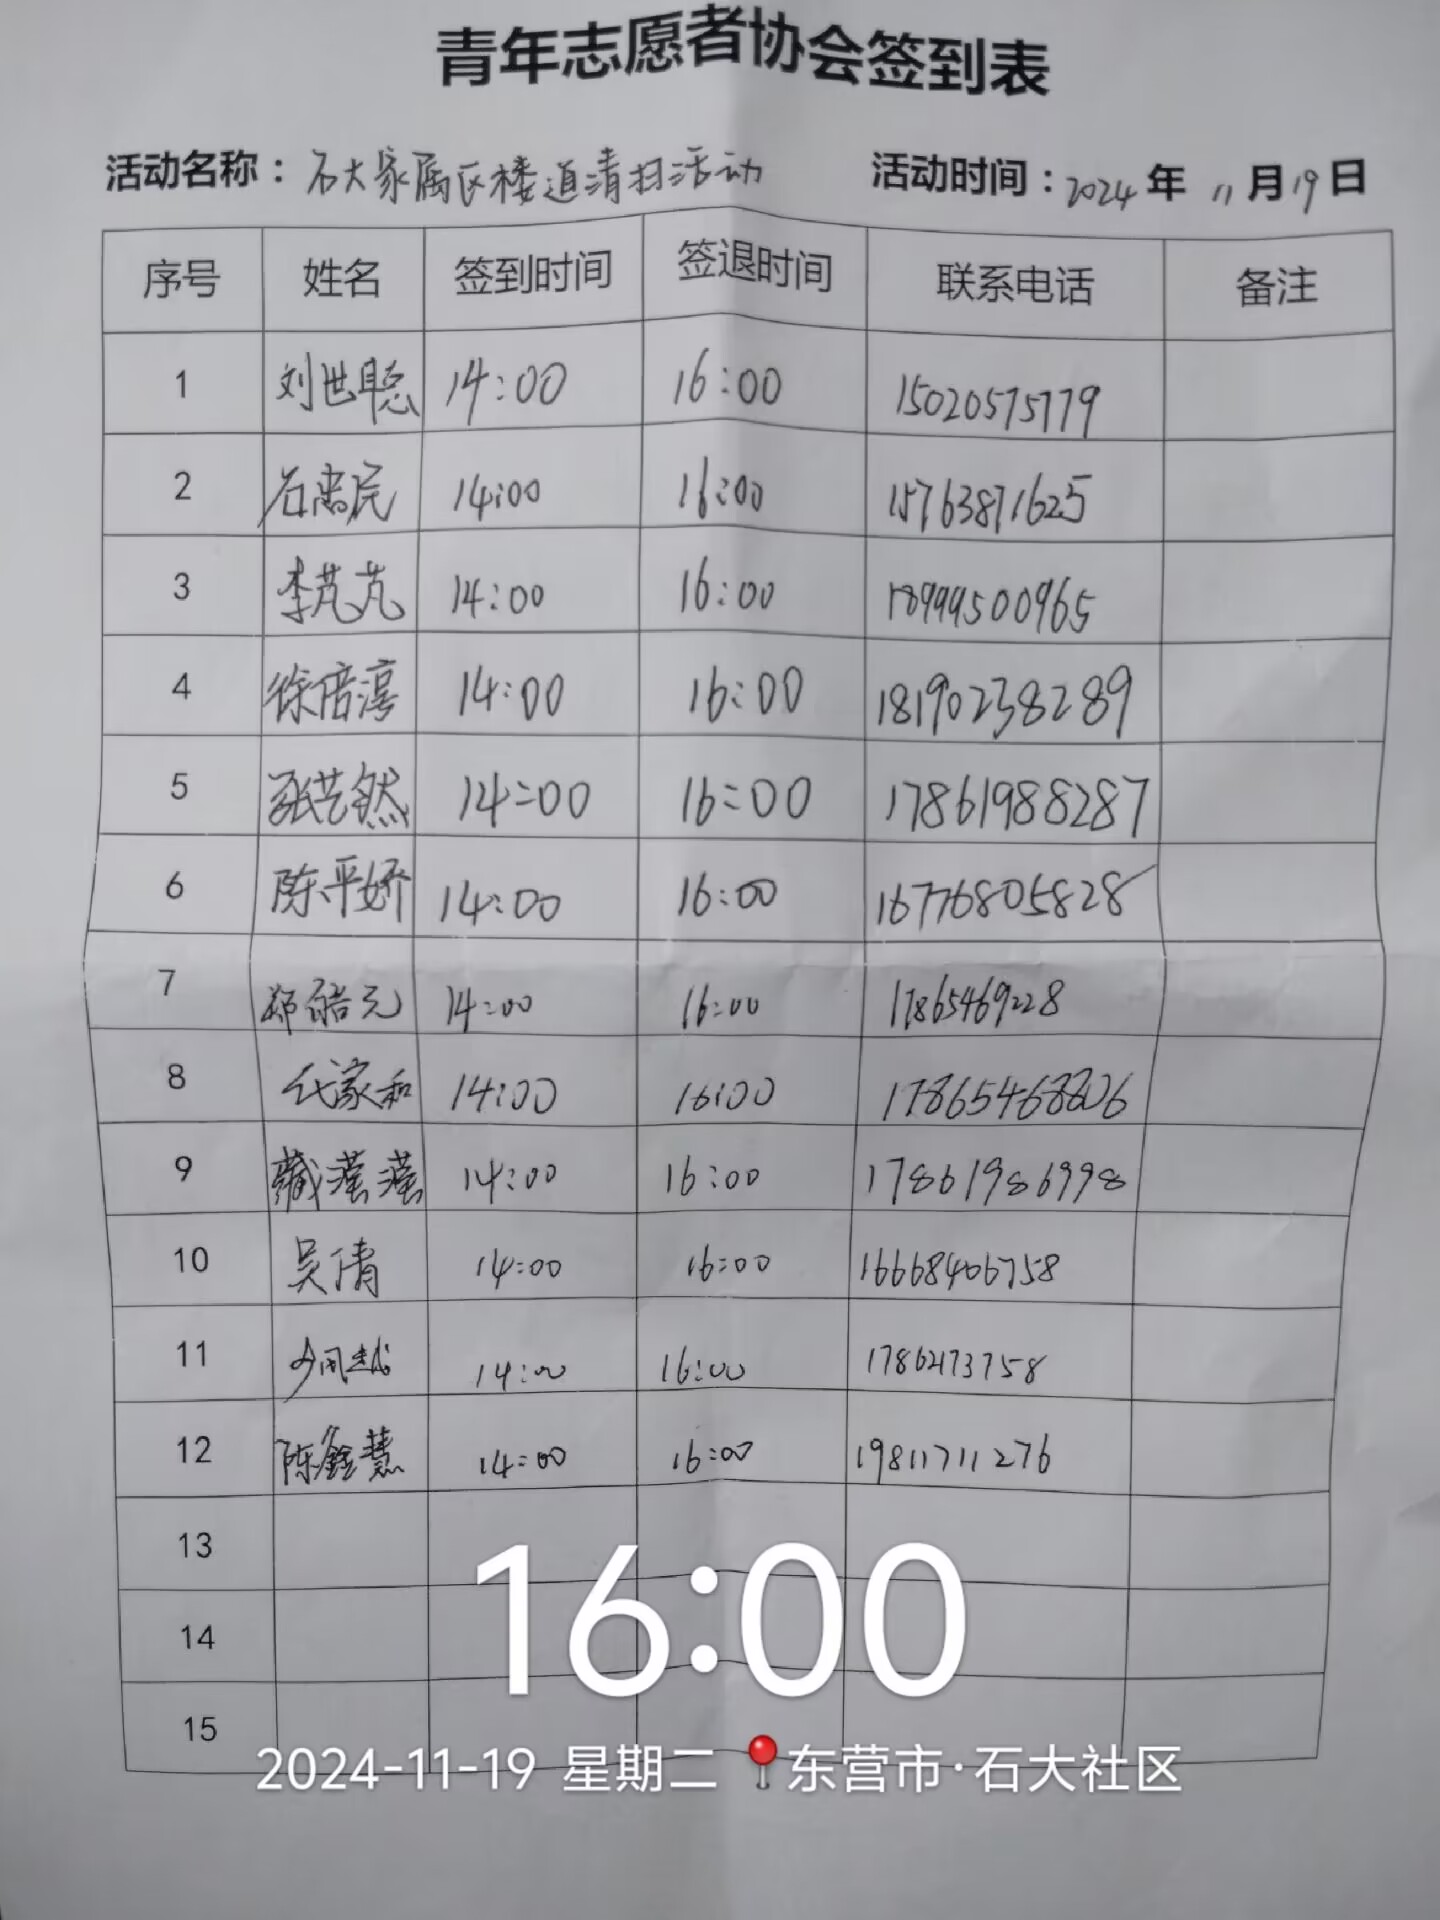 青年志愿者协会签到表
活动名称：石大家属区楼道清扫活动 活动时间：2024年 11月19日
序号 姓名 签到时间 签退时间 联系电话 备注
1 刘世聪 14:00 16:00 15020575779
2 石惠民 14:00 16:00 15763871625
3 李芃芃 14:00 16:00 18999500965
4 徐倍淳 14:00 16:00 18190238289
5 张艺然 14:00 16:00 17861988287
6 陈平娇 14:00 16:00 16776805828
7 郑皓元 14:00 16:00 17865469228
8 代家和 14:00 16:00 17865468806
9 臧潇潇 14:00 16:00 17861986998
10 吴倩 14:00 16:00 16668406758
11 14:00 16:00
12 陈鑫慧 14:00 16:00 19811711276
13
14
15
16:00
2024-11-19 星期二 东营市·石大社区